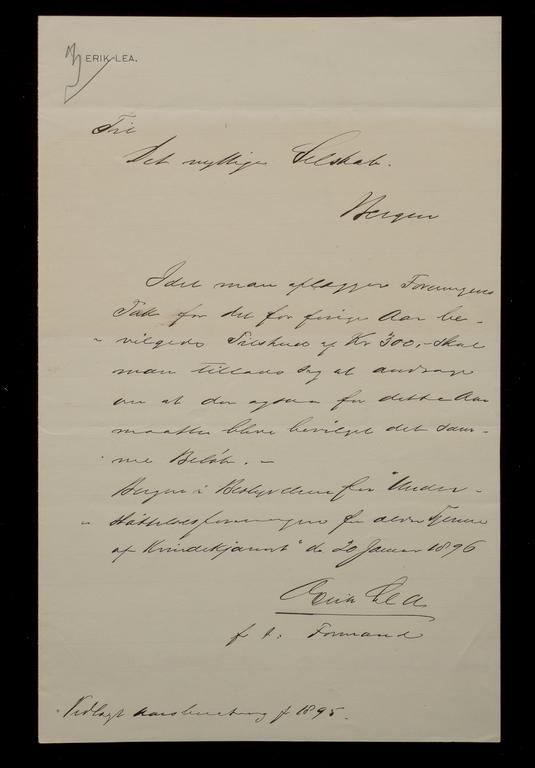 ERIK LEA.
Til
Det nyttige Selskab.
Bergen
Idet man aflægger Foreningens
Tak for det for forige Aar be-
vilgede Tilskud af Kr 300,- skal
man tillade sig at andrage
om at der ogsaa for dette Aar
maatte blive bevilget det sam-
me Beløb. -
Bergen i Bestyrelsen for "Under-
støttelsesforeningen for ældre Tjenere
af Kvindekjønnet" de 20 Januar 1896
Erik Lea
f t. Formand
Vedlagt Aarsberetning f 1895.